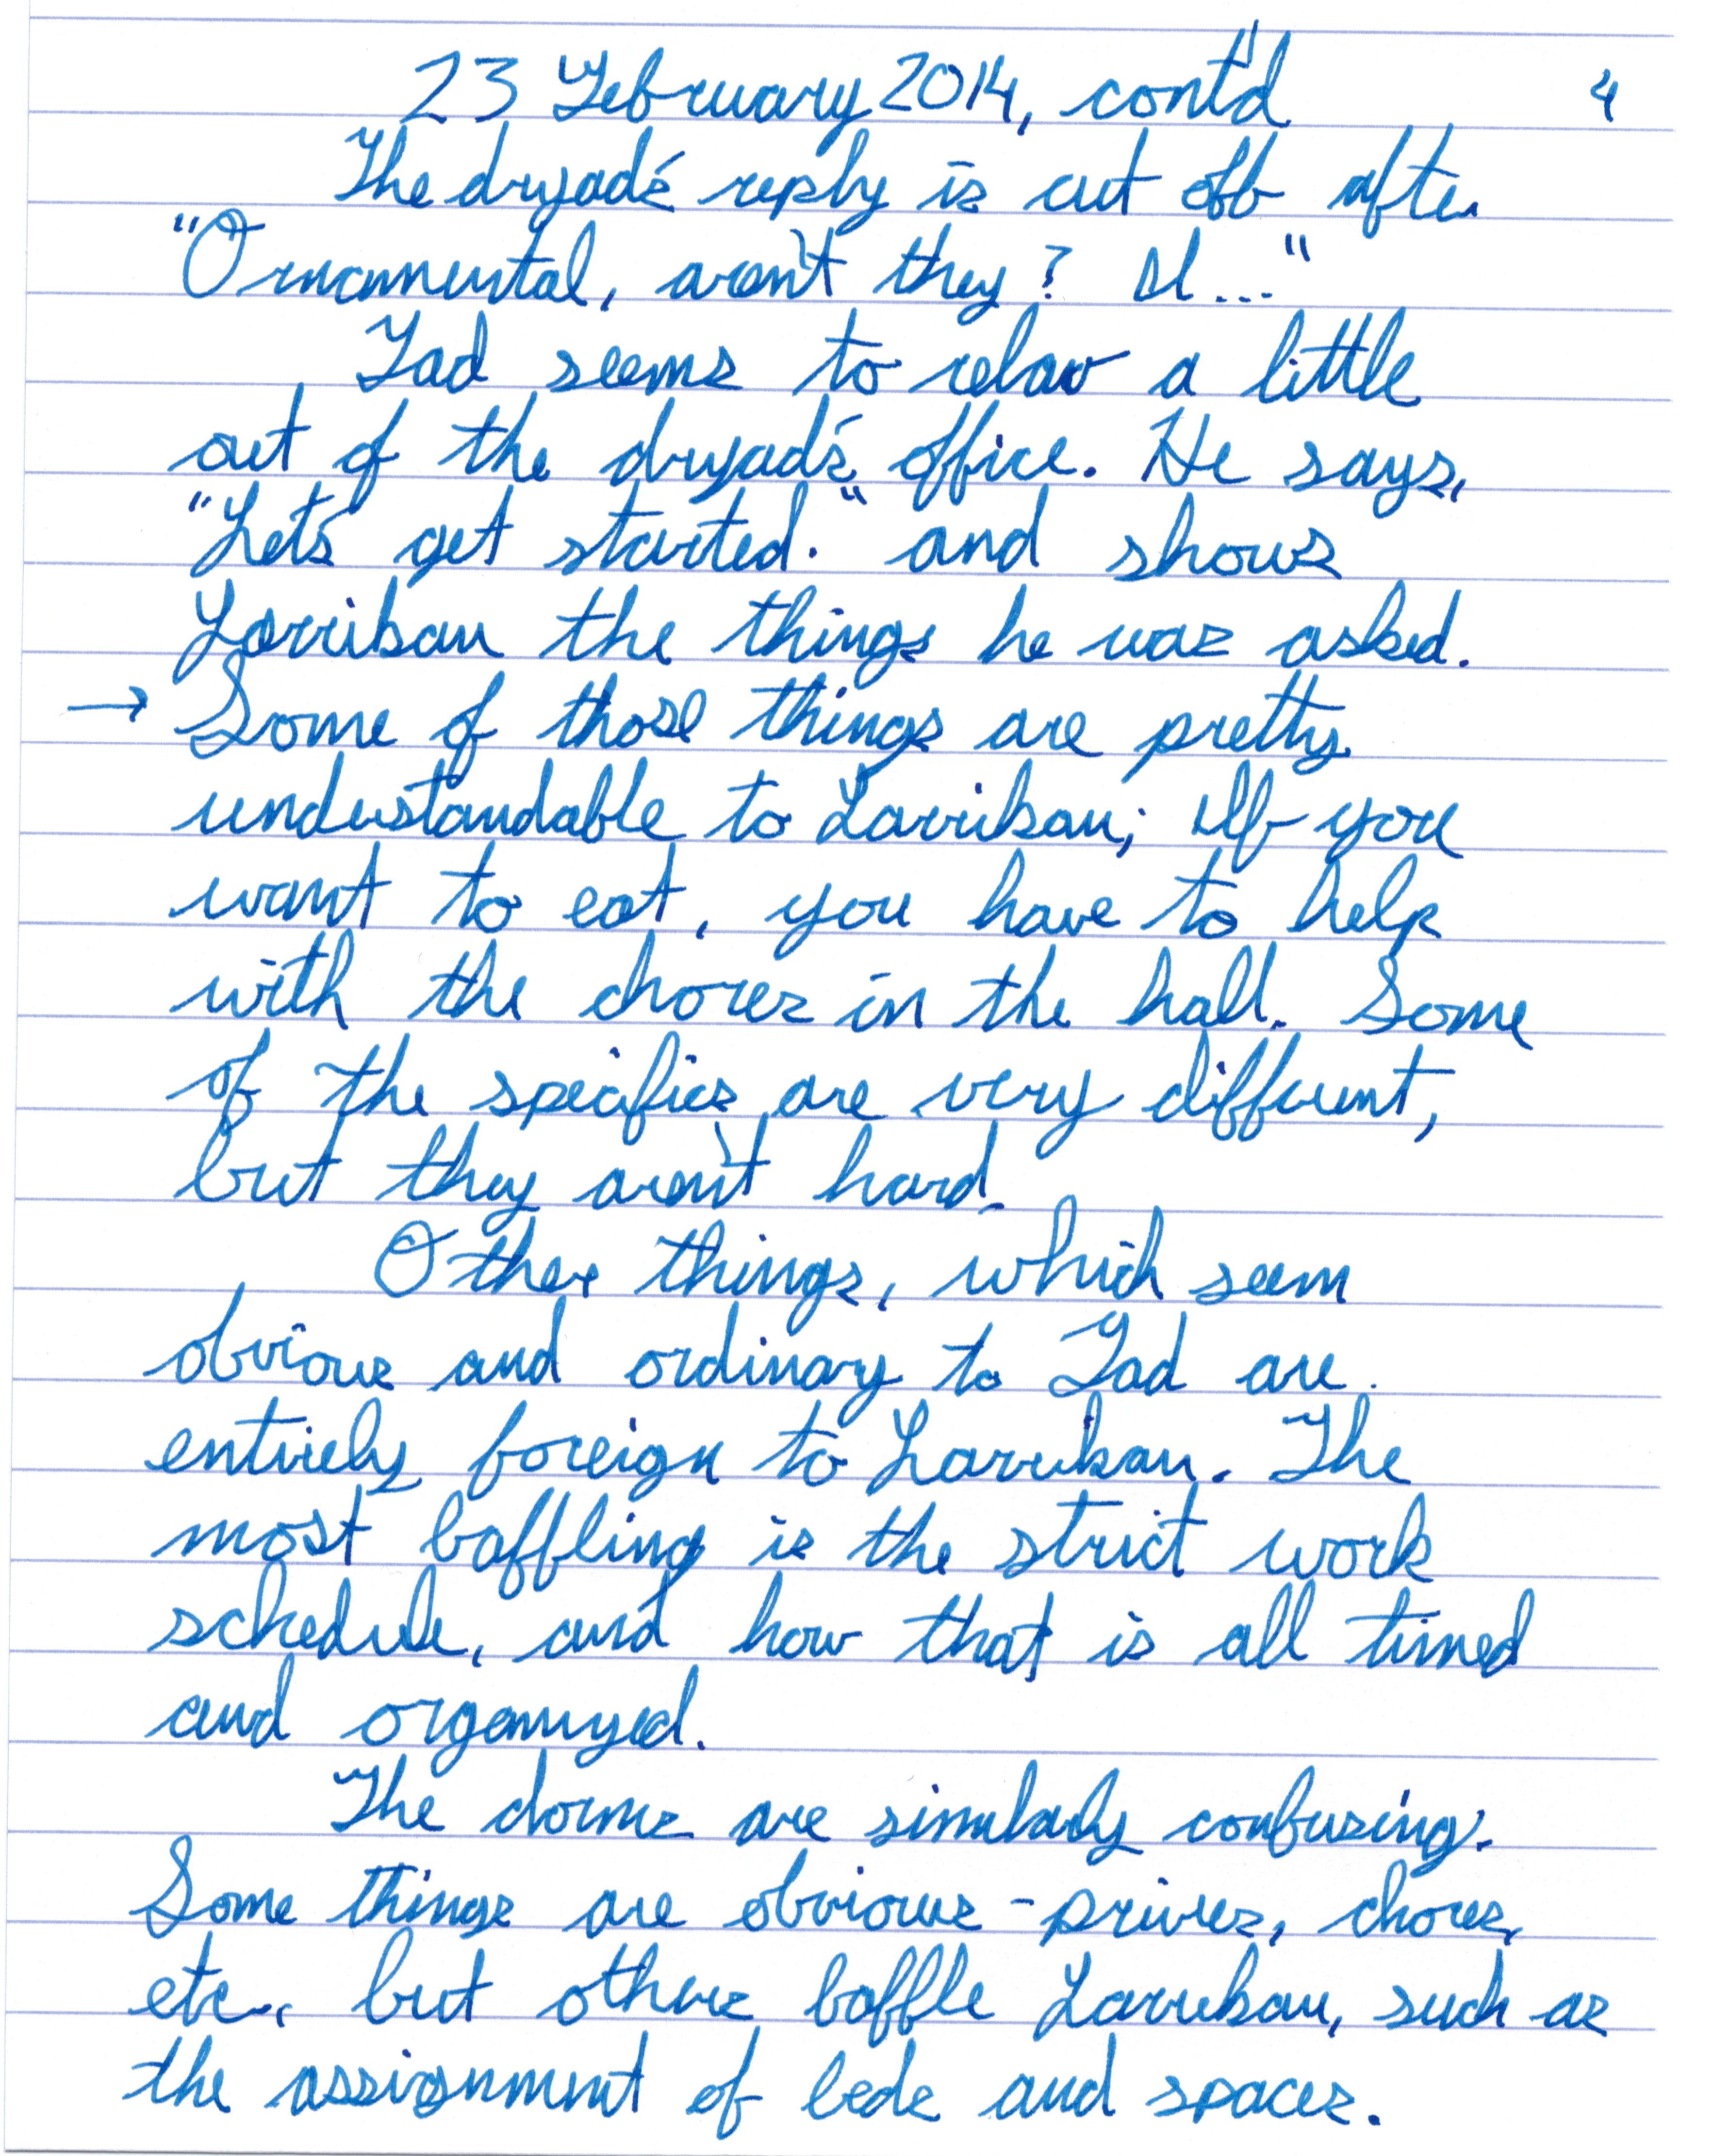 23 February 2014, cont'd 4
The dryad's reply is cut off after
"Ornamental, aren't they? I..."
Tad seems to relax a little
out of the dryad's office. He says,
"Let's get started." and shows
Larrikan the things he was asked.
→ Some of those things are pretty
understandable to Larrikan; If you
want to eat, you have to help
with the chores in the hall. Some
of the specifics are very different,
but they aren't hard.
Other things, which seem
obvious and ordinary to Tad are
entirely foreign to Larrikan. The
most baffling is the strict work
schedule, and how that is all timed
and organized.
The dorms are similarly confusing.
Some things are obvious - privies, chores,
etc., but others baffle Larrikan, such as
the assignment of beds and spaces.